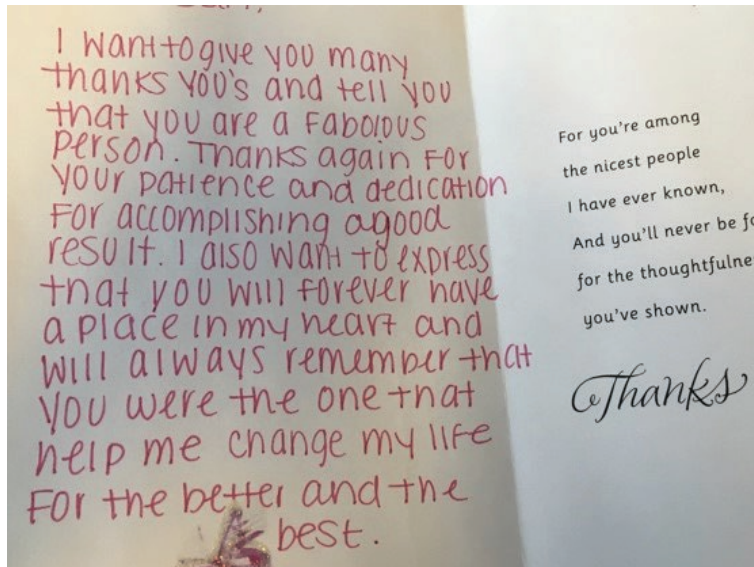 I want to give you many
thanks you's and tell you
that you are a Fabolous
person. Thanks again for
your patience and dedication
for accomplishing a good
result. I also want to express
that you will forever have
a place in my heart and
will always remember that
you were the one that
help me change my life
for the better and the
best.
For you're among
the nicest people
I have ever known,
And you'll never be
for the
you've shown.
Thanks